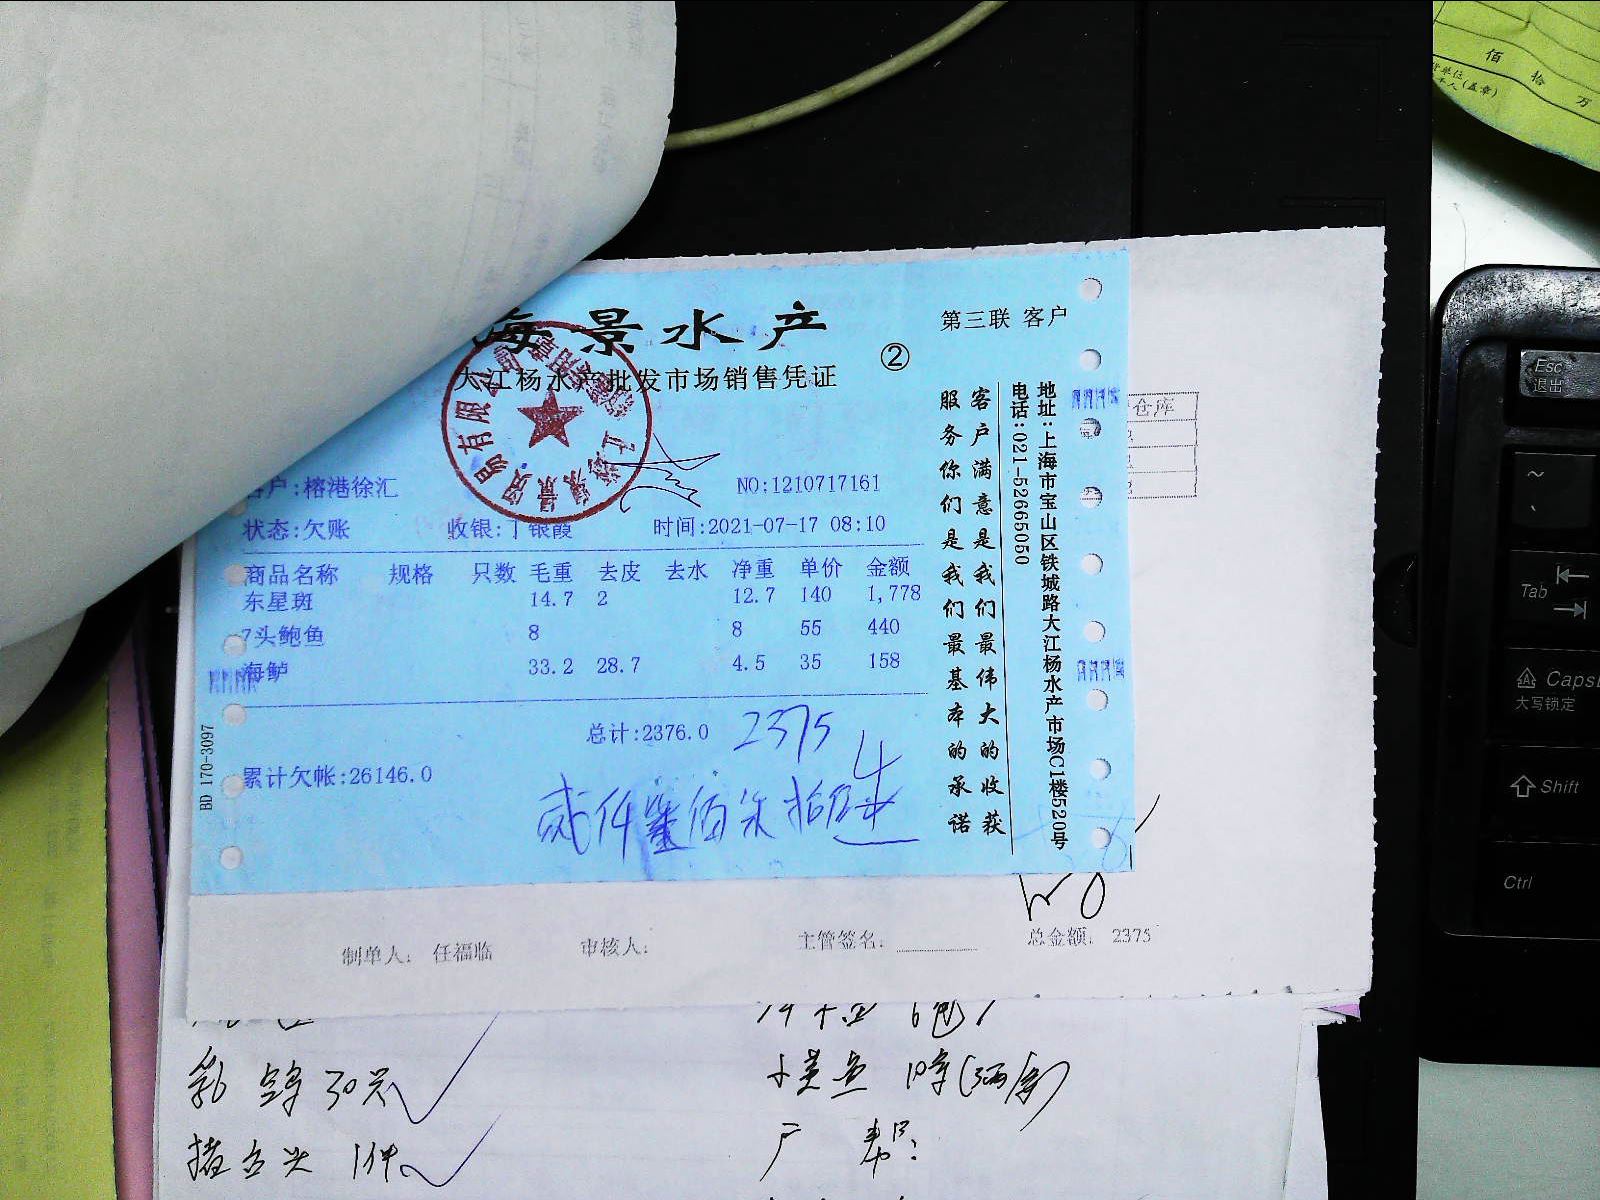 海景水产
第三联 客户
②
大江杨水产批发市场销售凭证
客户:榕港徐汇
NO:1210717161
状态:欠账 收银:丁银霞 时间:2021-07-17 08:10
商品名称 规格 只数 毛重 去皮 去水 净重 单价 金额
东星斑 14.7 2 12.7 140 1,778
7头鲍鱼 8 8 55 440
海鲈 33.2 28.7 4.5 35 158
总计:2376.0 2375
累计欠帐:26146.0
贰仟叁佰柒拾伍
BD 170-3097
服务你们是我们最基本的承诺
客户满意是我们最伟大的收获
电话:021-52665050
地址:上海市宝山区铁城路大江杨水产市场C1楼520号
仓库
制单人: 任福临 审核人: 主管签名: 总金额: 2375
乳鸽 30只
小黄鱼
1件
佰 拾 万
(盖章)
Esc
退出
~
Tab
Caps
大写锁定
Shift
Ctrl